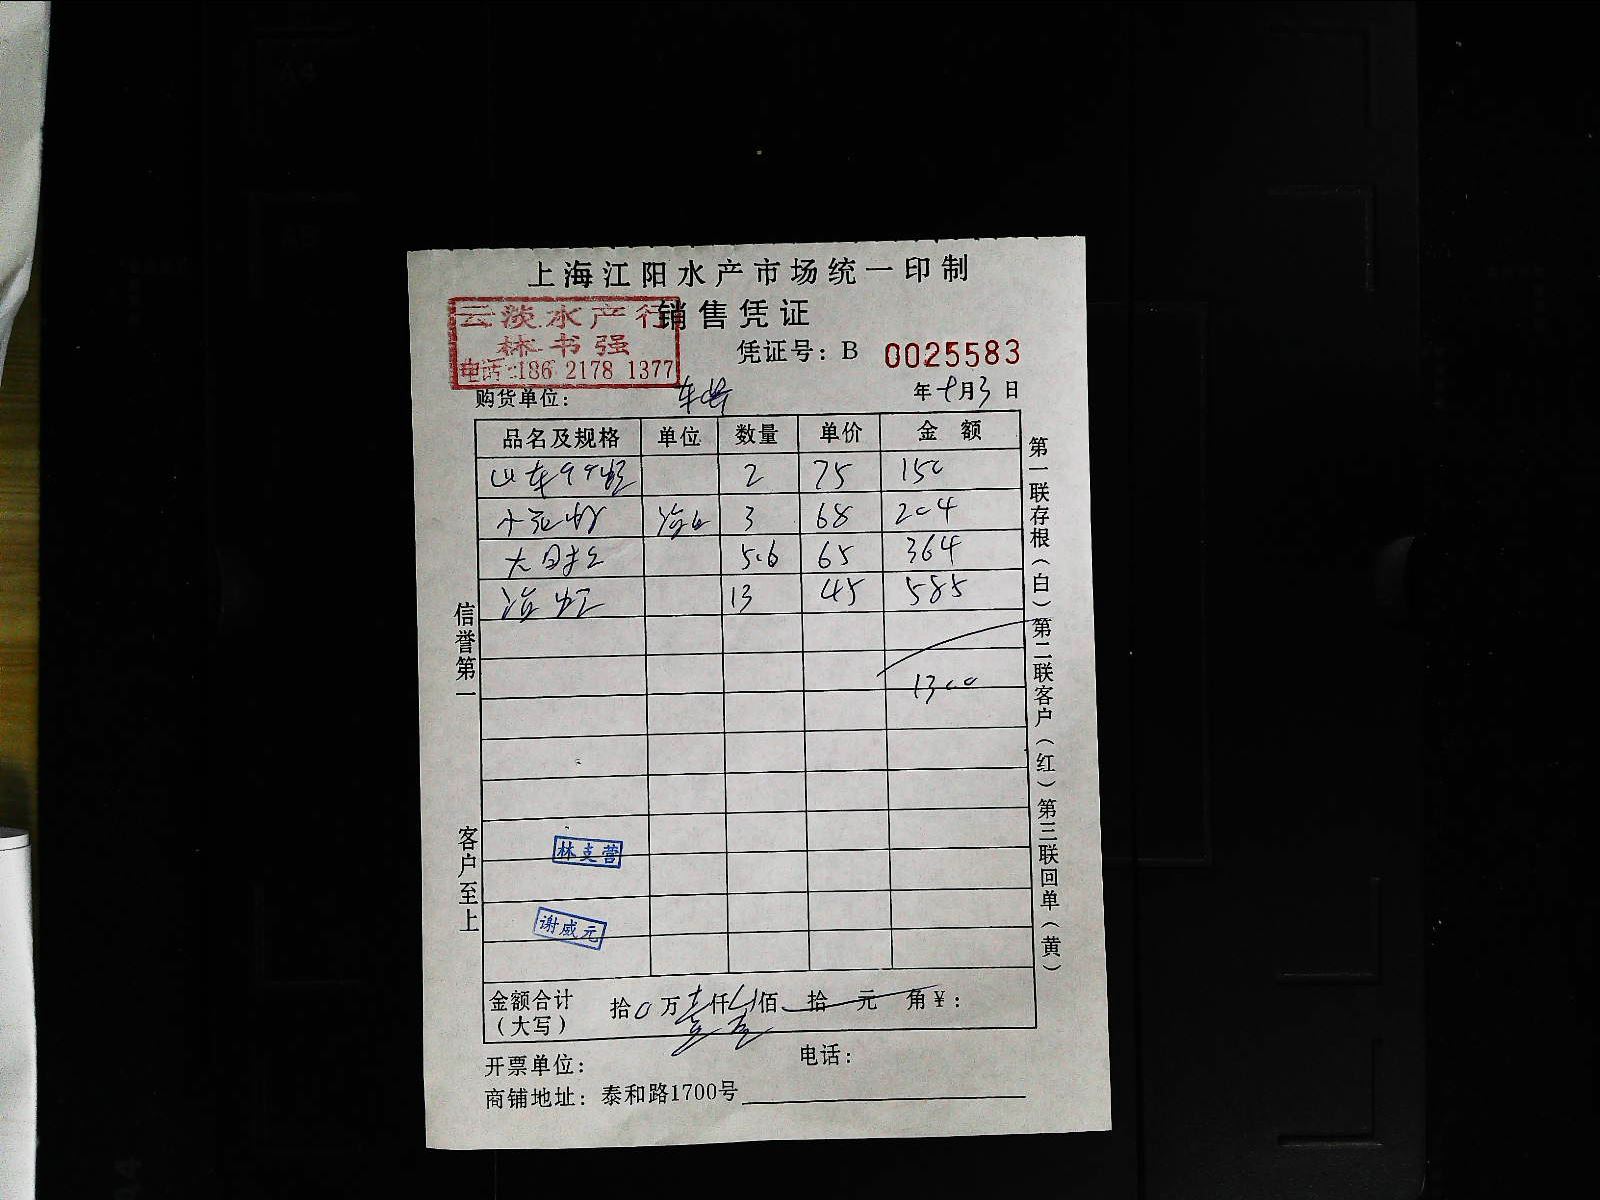 上海江阳水产市场统一印制
销售凭证
云淡水产行
林书强
电话:186 2178 1377
凭证号：B 0025583
购货单位：
年 七月3日
品名及规格 单位 数量 单价 金额
山东 2 75 150
3 68 204
5.6 65 364
13 45 585
1300
信誉第一
客户至上
林支营
谢威元
第一联存根（白）第二联客户（红）第三联回单（黄）
金额合计（大写） 拾0万壹仟 佰 拾 元 角¥：
开票单位： 电话：
商铺地址：泰和路1700号